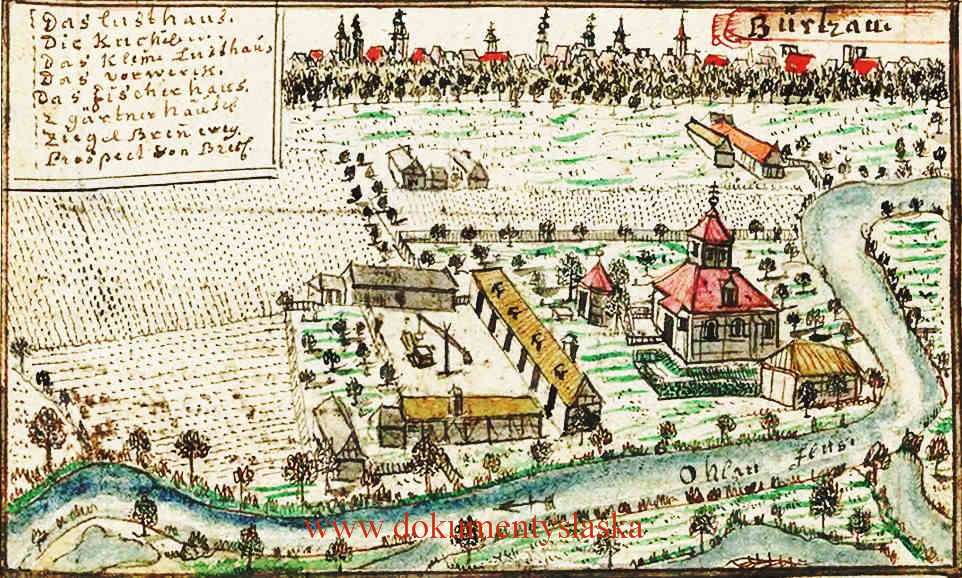 Das lusthaus.
Die Kuchel
Das Kleine Lusthaus
Das vorwerck.
Das fischerhaus.
2 gärtnerhäuser
Ziegel
Prospect von
Bürtzau
Ohlau
www.dokumentyslaska